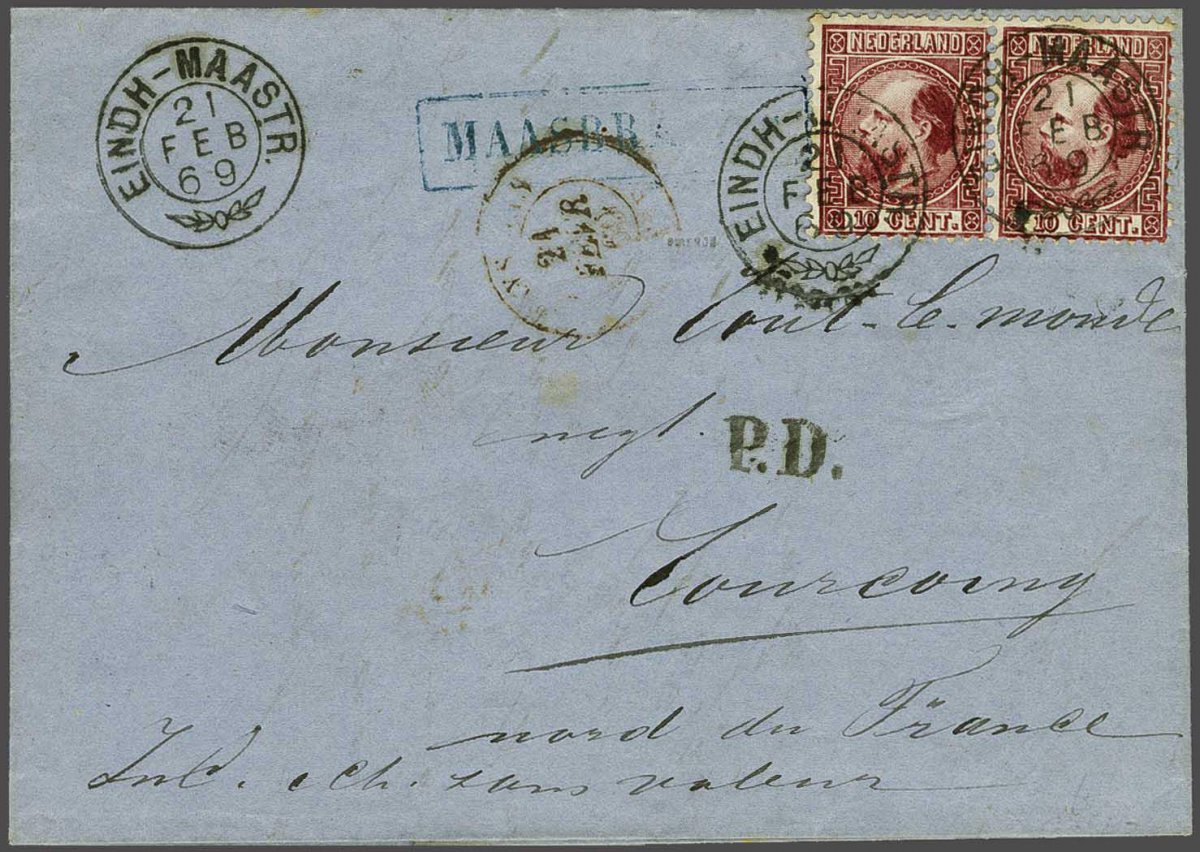 NEDERLAND NEDERLAND
10 CENT. 10 CENT.
EINDH-MAASTR.
21
FEB
69
MAASBR
EINDH-MAASTR.
21
FEB
69
EINDH-MAASTR.
21
FEB
69
21
Monsieur Tout-le-monde
negt.
P.D.
Tourcoing
nord du France
Incl. éch. sans valeur